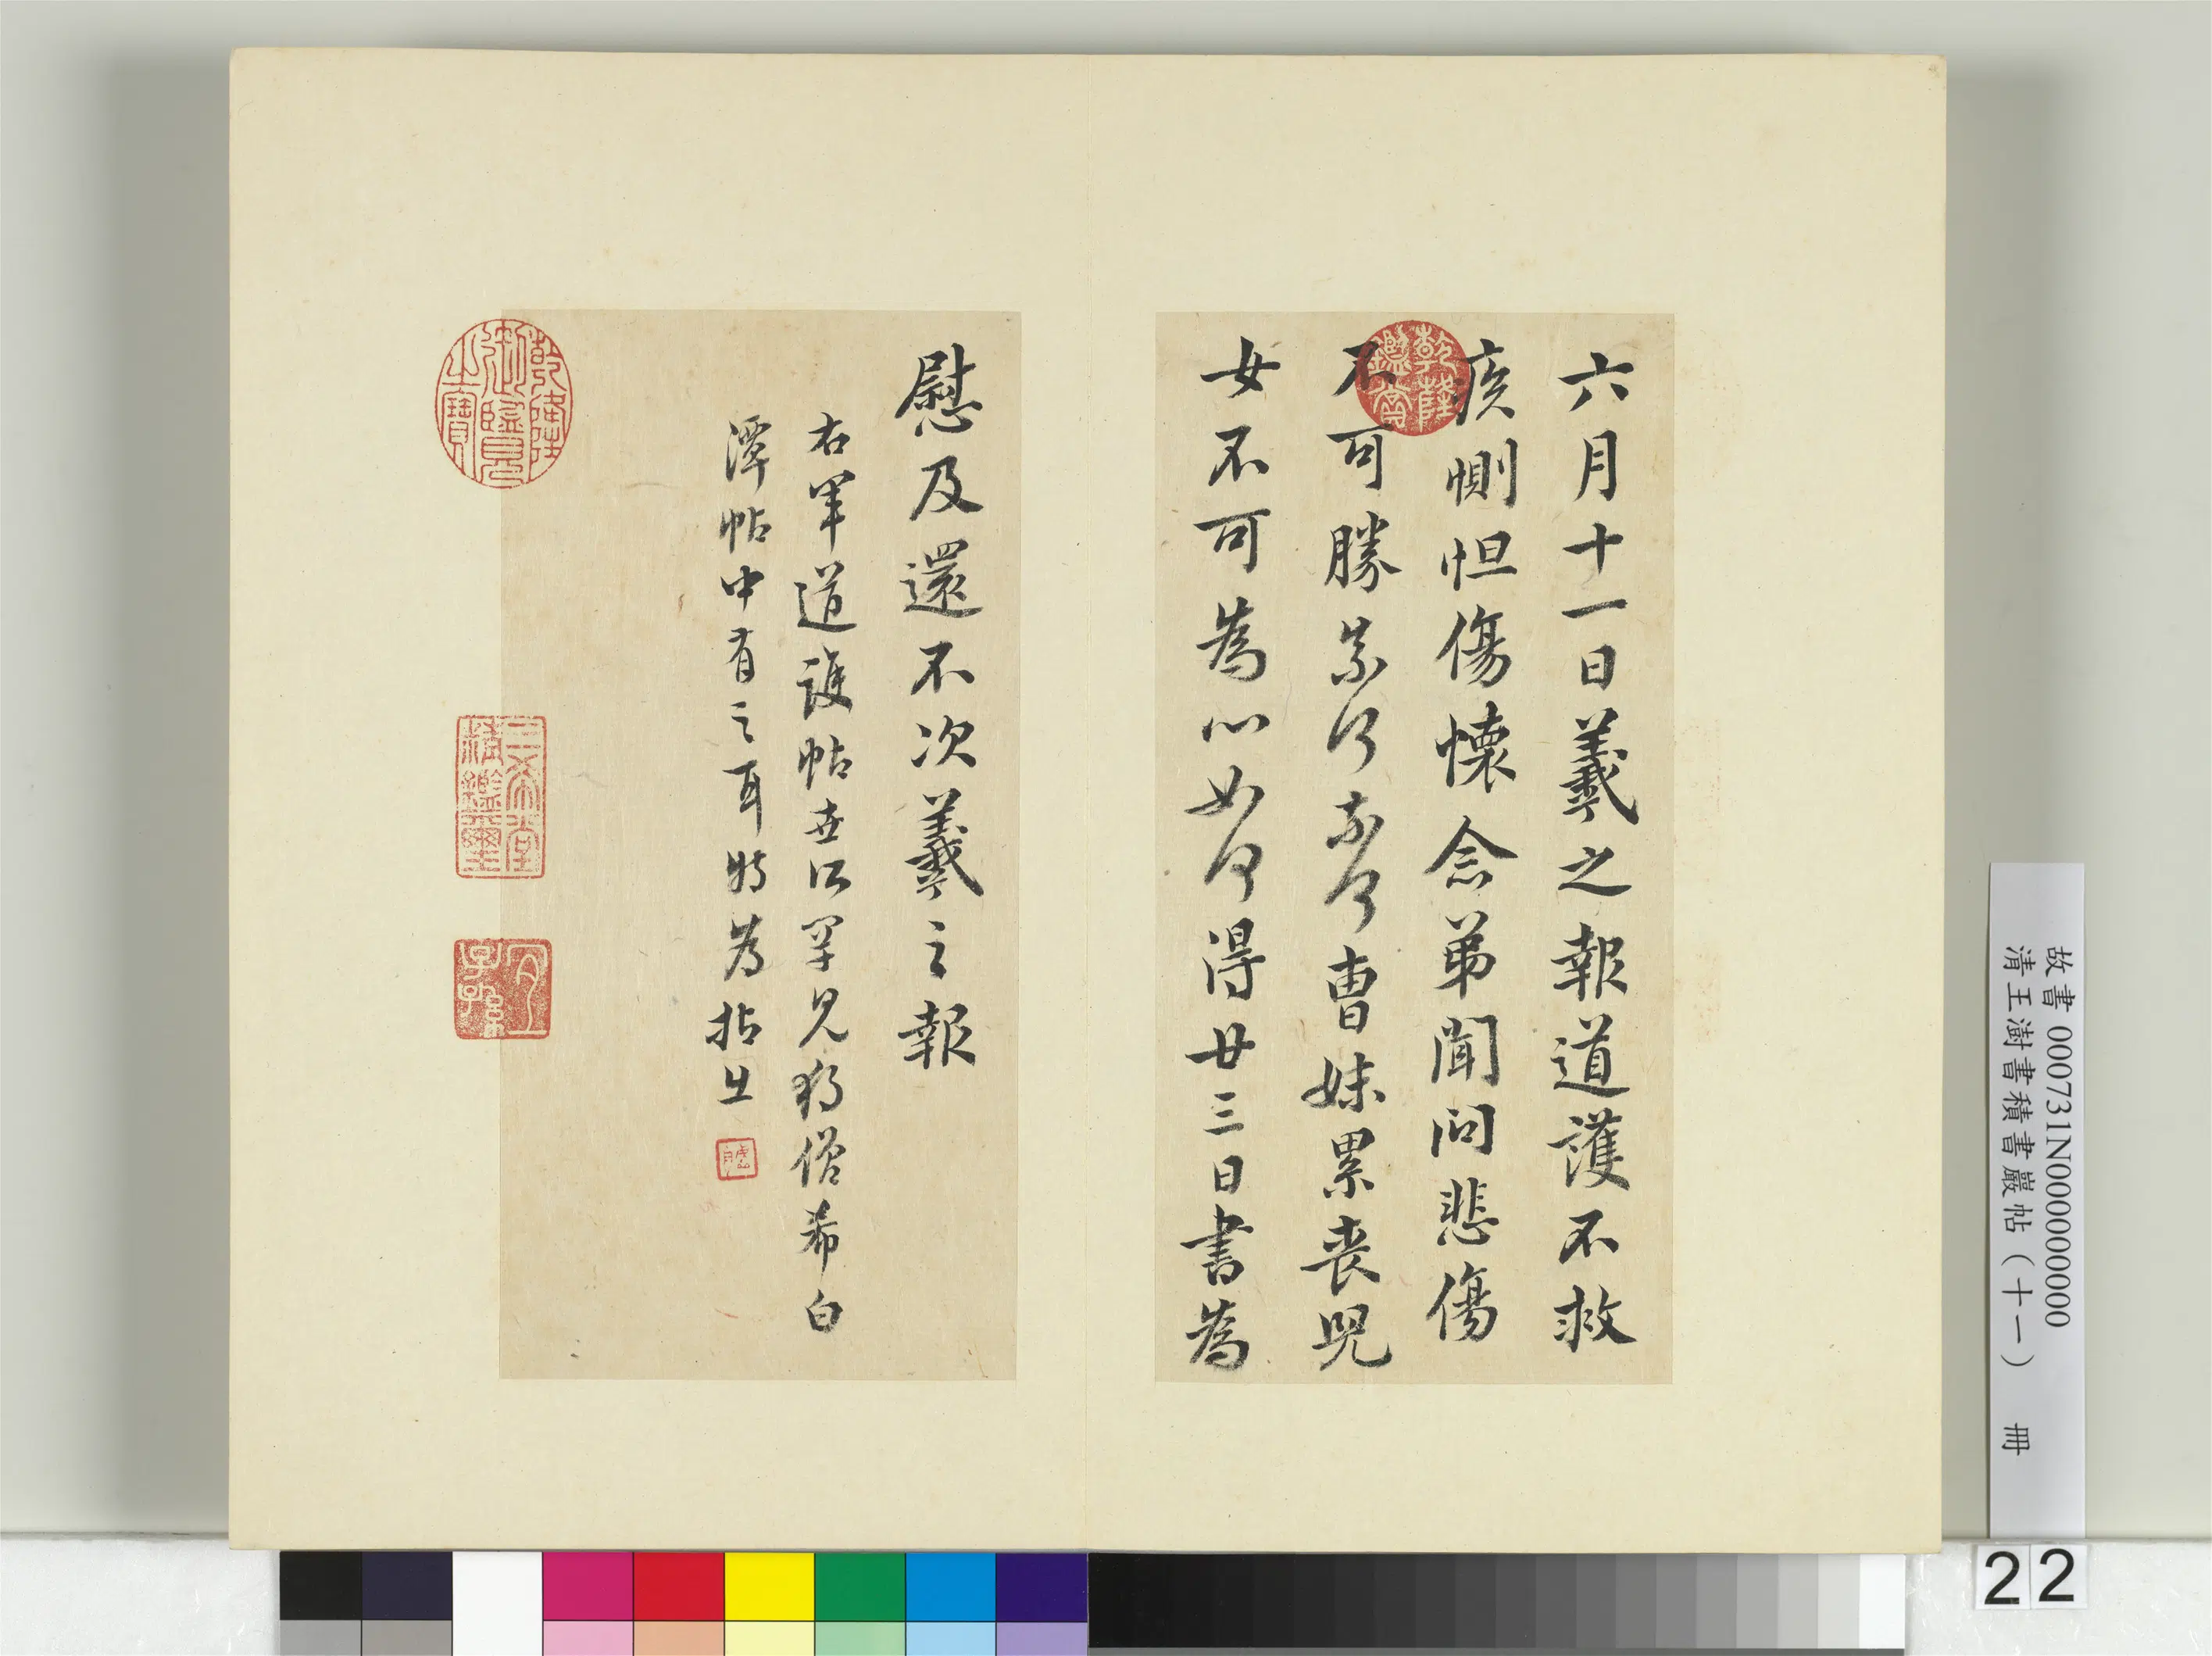 六月十一日羲之報道護不救
疾惻怛傷懷念弟聞問悲傷
不可勝奈何奈何曹妹累喪兒
女不可為心如何得廿三日書為
慰及還不次羲之報
右軍道護帖世所罕見獨僧希白
潭帖中有之耳特為拈出
乾隆鑑賞
乾隆御覽之寶
三希堂精鑑璽
宜子孫
故書 000731N000000000
清王澍書積書巖帖（十一） 冊
22